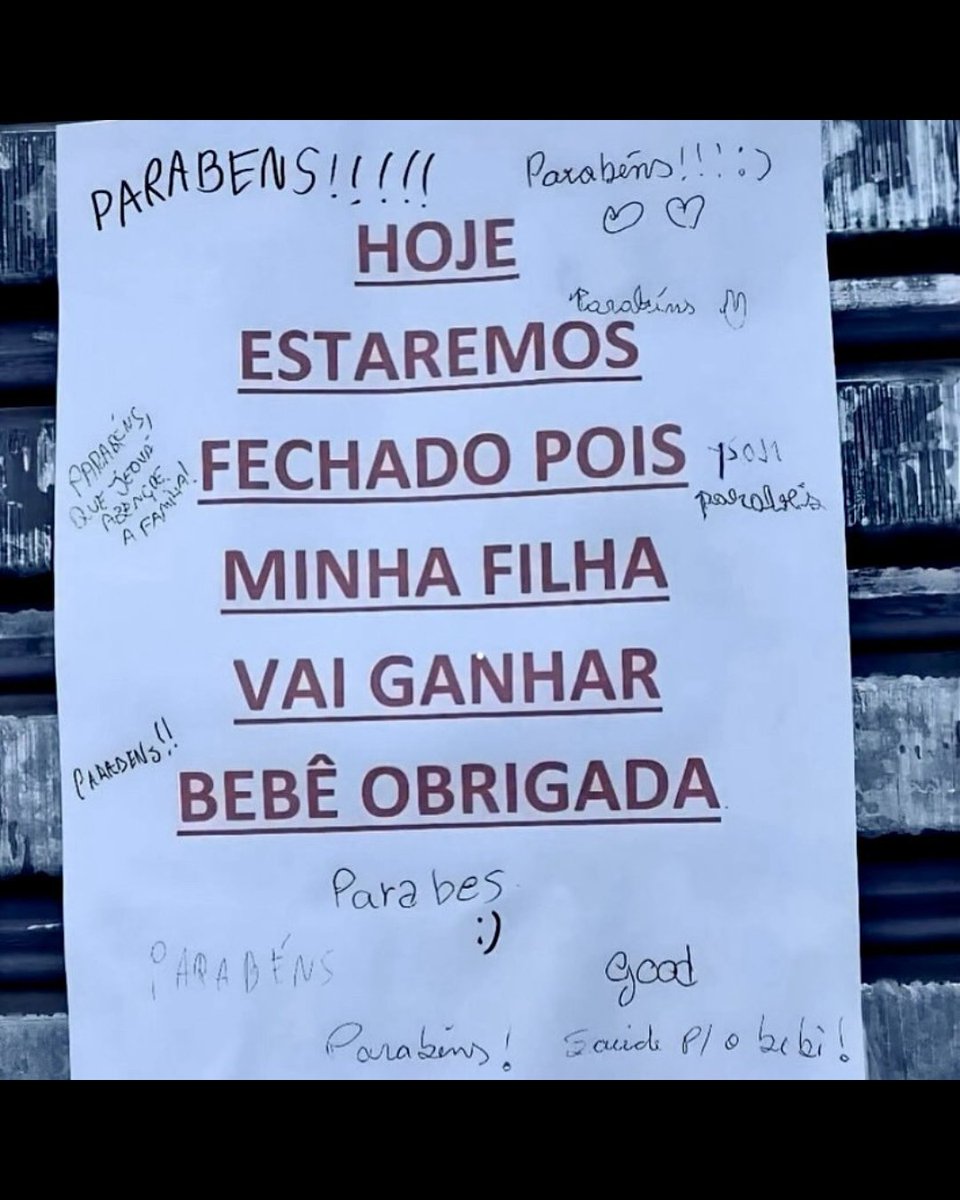 PARABENS!!!!!
Parabéns!!! :)
HOJE
Parabéns
ESTAREMOS
PARABÉNS,
QUE JEOVÁ
ABENÇOE
A FAMILIA!
FECHADO POIS
parabéis
MINHA FILHA
VAI GANHAR
PARABENS!!
BEBÊ OBRIGADA
Parabes
:)
PARABÉNS
good
Parabéns!
Saúde P/ o bebê!